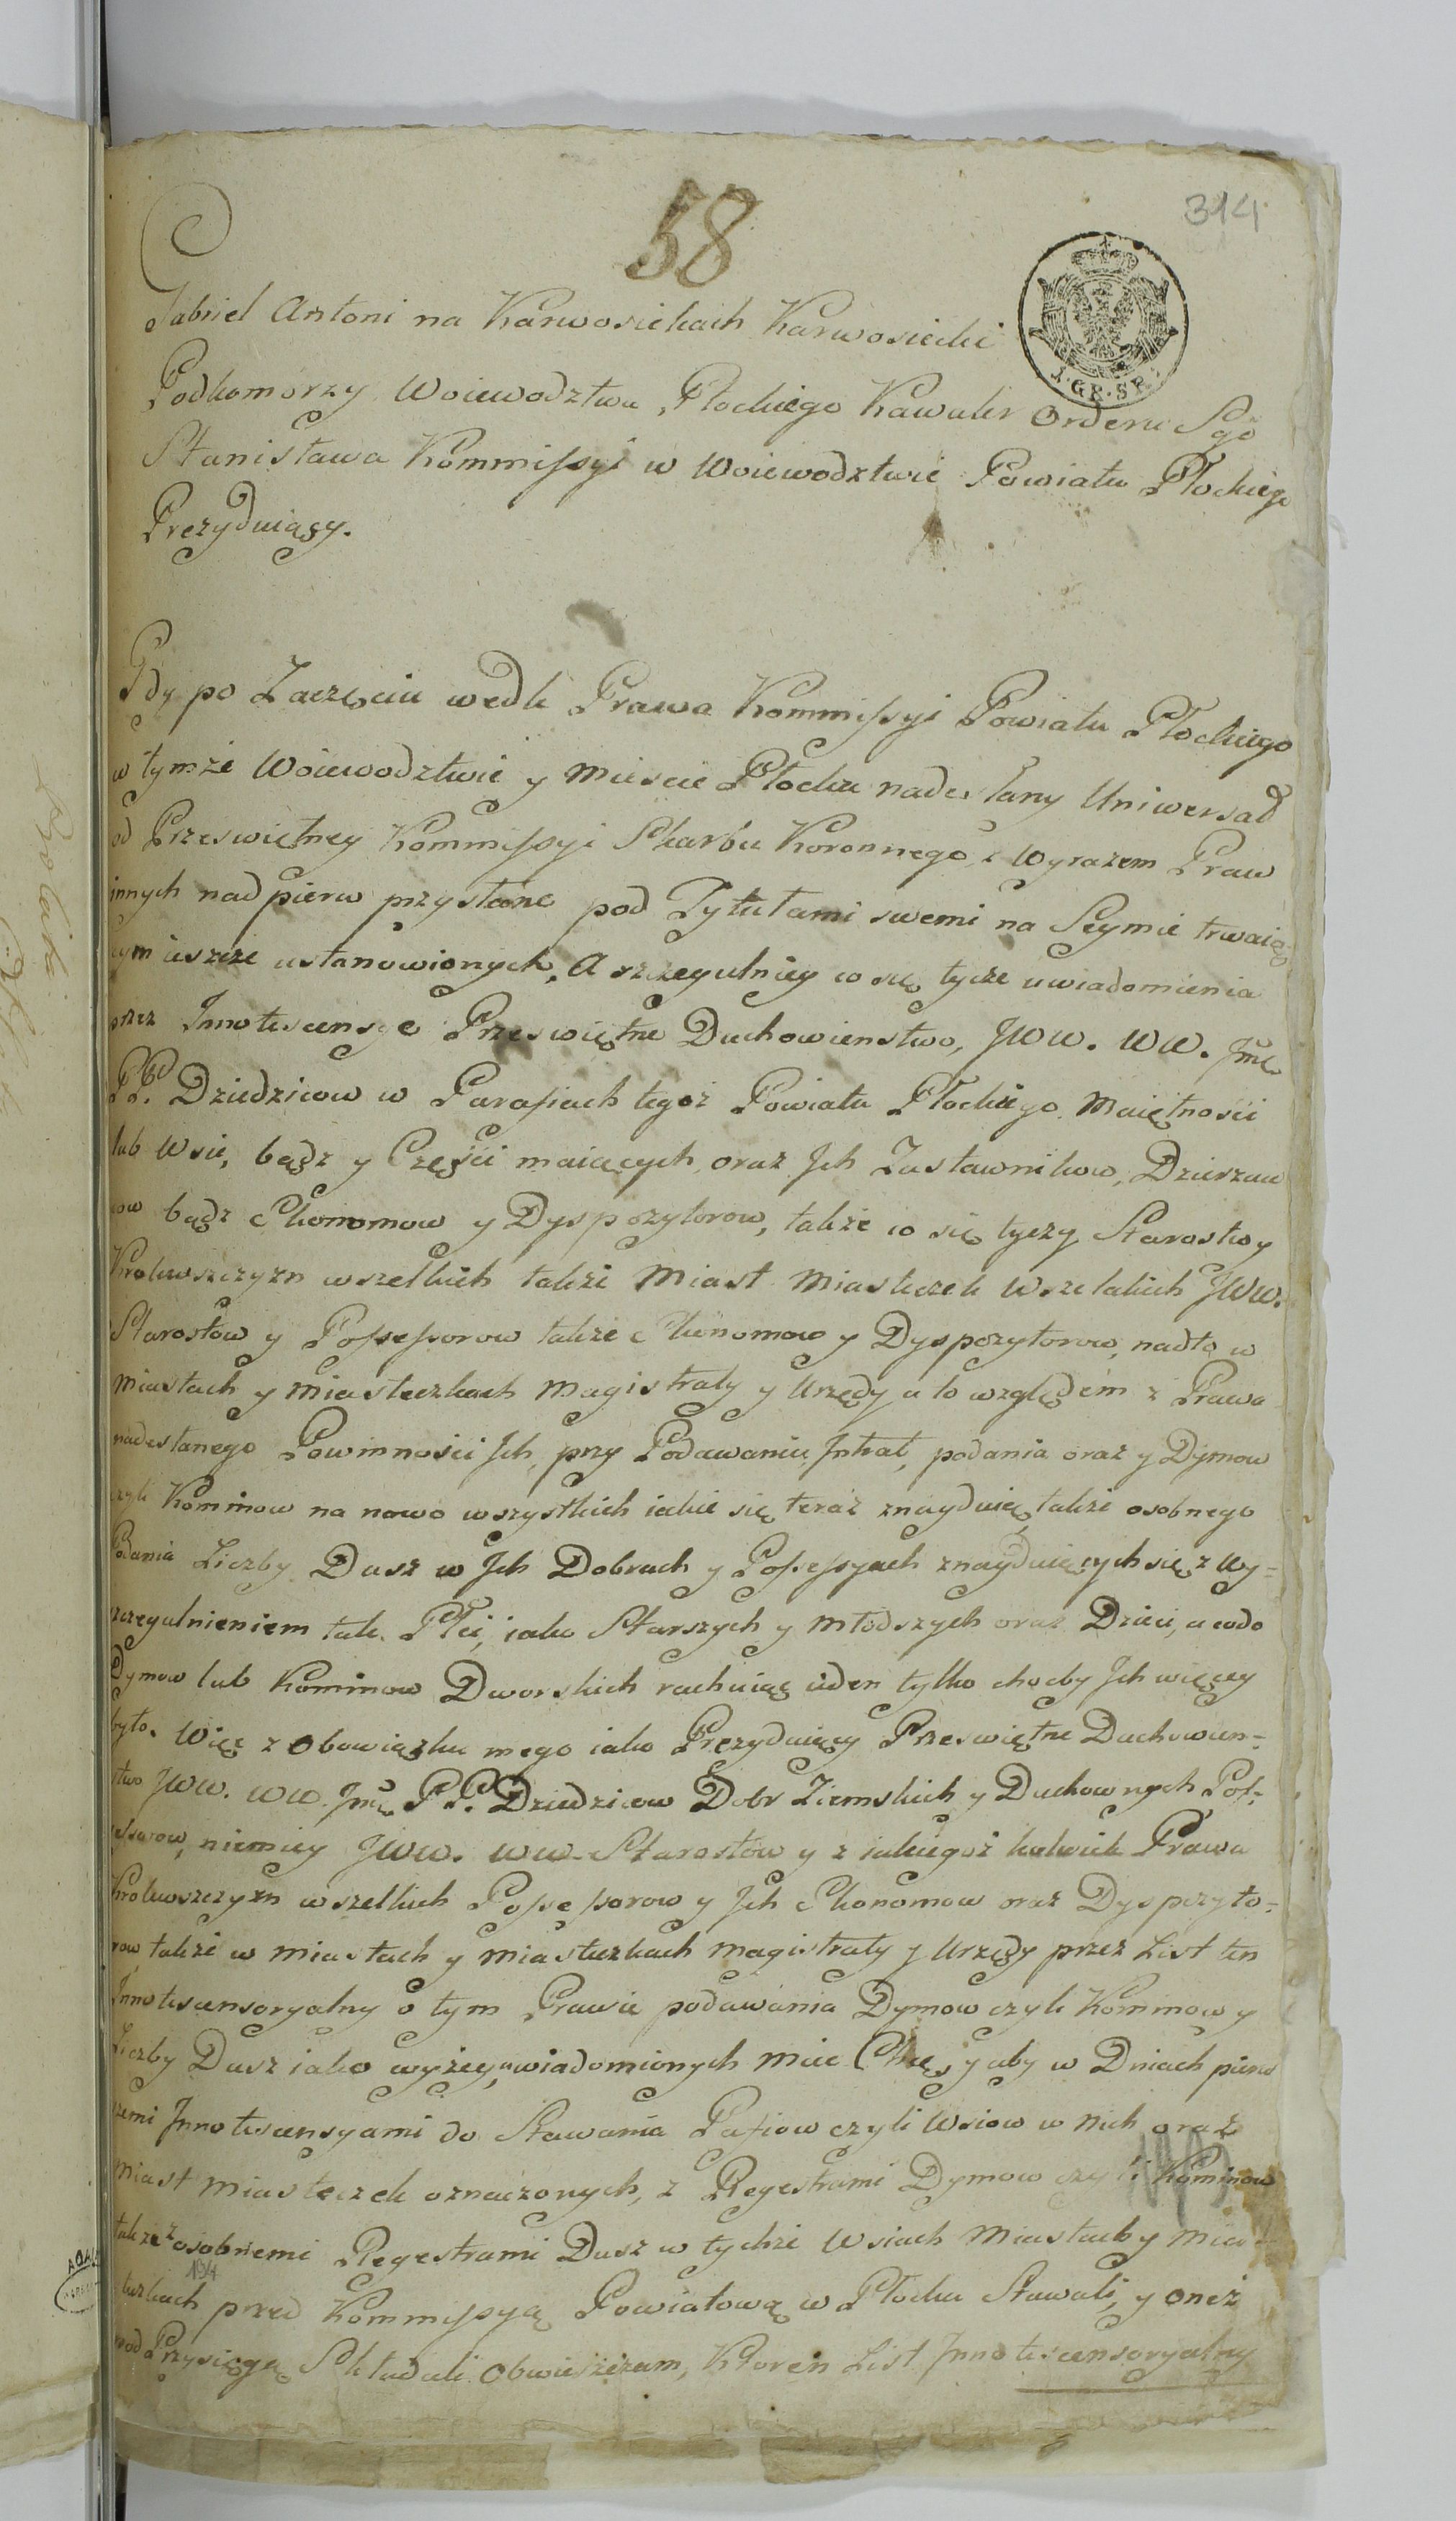 58
314
Gabriel Antoni na Karwosiekach Karwosiecki
I·GR·SR·
Podkomorzy Woiewodztwa Płockiego Kawaler Orderu Sgo
Stanisława Kommissyi w Woiewodztwie Powiatu Płockiego
Prezyduiący.
Gdy po Zaczęciu wedle Prawa Kommissyi Powiatu Płockiego
w tymże Woiewodztwie y Miescie Płocku nadesłany Uniwersał
od Przeswietney Kommissyi Skarbu Koronnego z Wyrazem Praw
innych nadpierw przysłane pod Tytułami swemi na Seymie trwaią=
cym ieszcze ustanowionych, A szczegulniey co się tycze uwiadomienia
przez Innotescensye Przeswiętne Duchowienstwo, JWW. WW. Jmć
PP. Dziedzicow w Parafiach tegoż Powiatu Płockiego Maiętnosci
lub Wsie, bądz y Częsci maiących, oraz Jch Zastawnikow, Dzierzaw
cow bądz Ekonomow y Dyspozytorow, także co się tyczy Starostw y
Krolewszczyzn wszelkich także Miast Miasteczek Wszelakich JWW.
Starostow y Possessorow także Ekonomow y Dyspozytorow, nadto w
Miastach y Miasteczkach Magistraty y Urzędy a to względem z Prawa
nadesłanego Powinnosci Jch, przy Podawaniu Jntrat, podania oraz y Dymow
czyli Kominow na nowo wszystkich iakie się teraz znayduią, także osobnego
Podania Liczby Dusz w Jch Dobrach y Possessyach znayduiących się z Wy=
szczegulnieniem tak Płci, iako Starszych y Młodszych oraz Dzieci, a codo
Dymow lub Kominow Dworskich rachuiąc ieden tylko chocby Jch więcey
było. Więc z Obowiązku mego iako Prezyduiący Przeswiętne Duchowien=
stwo JWW. WW. Jmć PP. Dziedzicow Dobr Ziemskich y Duchownych Pos=
sessorow, niemniey JWW. WW. Starostow y z iakiegoż kolwiek Prawa
Krolewszczyzn wszelkich Possessorow y Jch Ekonomow oraz Dyspozyto=
row także w Miastach y Miasteczkach Magistraty y Urzędy przez List ten
Jnnotescensoryalny o tym Prawie podawania Dymow czyli Kominow y
Liczby Dusz iako wyżey uwiadomionych miec Chcę, y aby w Dniach pierw
szemi Jnnotescensyami do Stawania Pafiow czyli Wsiow w nich oraz
Miast Miasteczek oznaczonych, z Regestrami Dymow czyli Kominow
także z osobnemi Regestrami Dusz w tychże Wsiach Miastach y Mias
194
teczkach przed Kommissyą Powiatową w Płocku Stawali, y oneż
pod Przysięgą Składali Obwieszczam, Ktoren List Jnnotescensoryalny